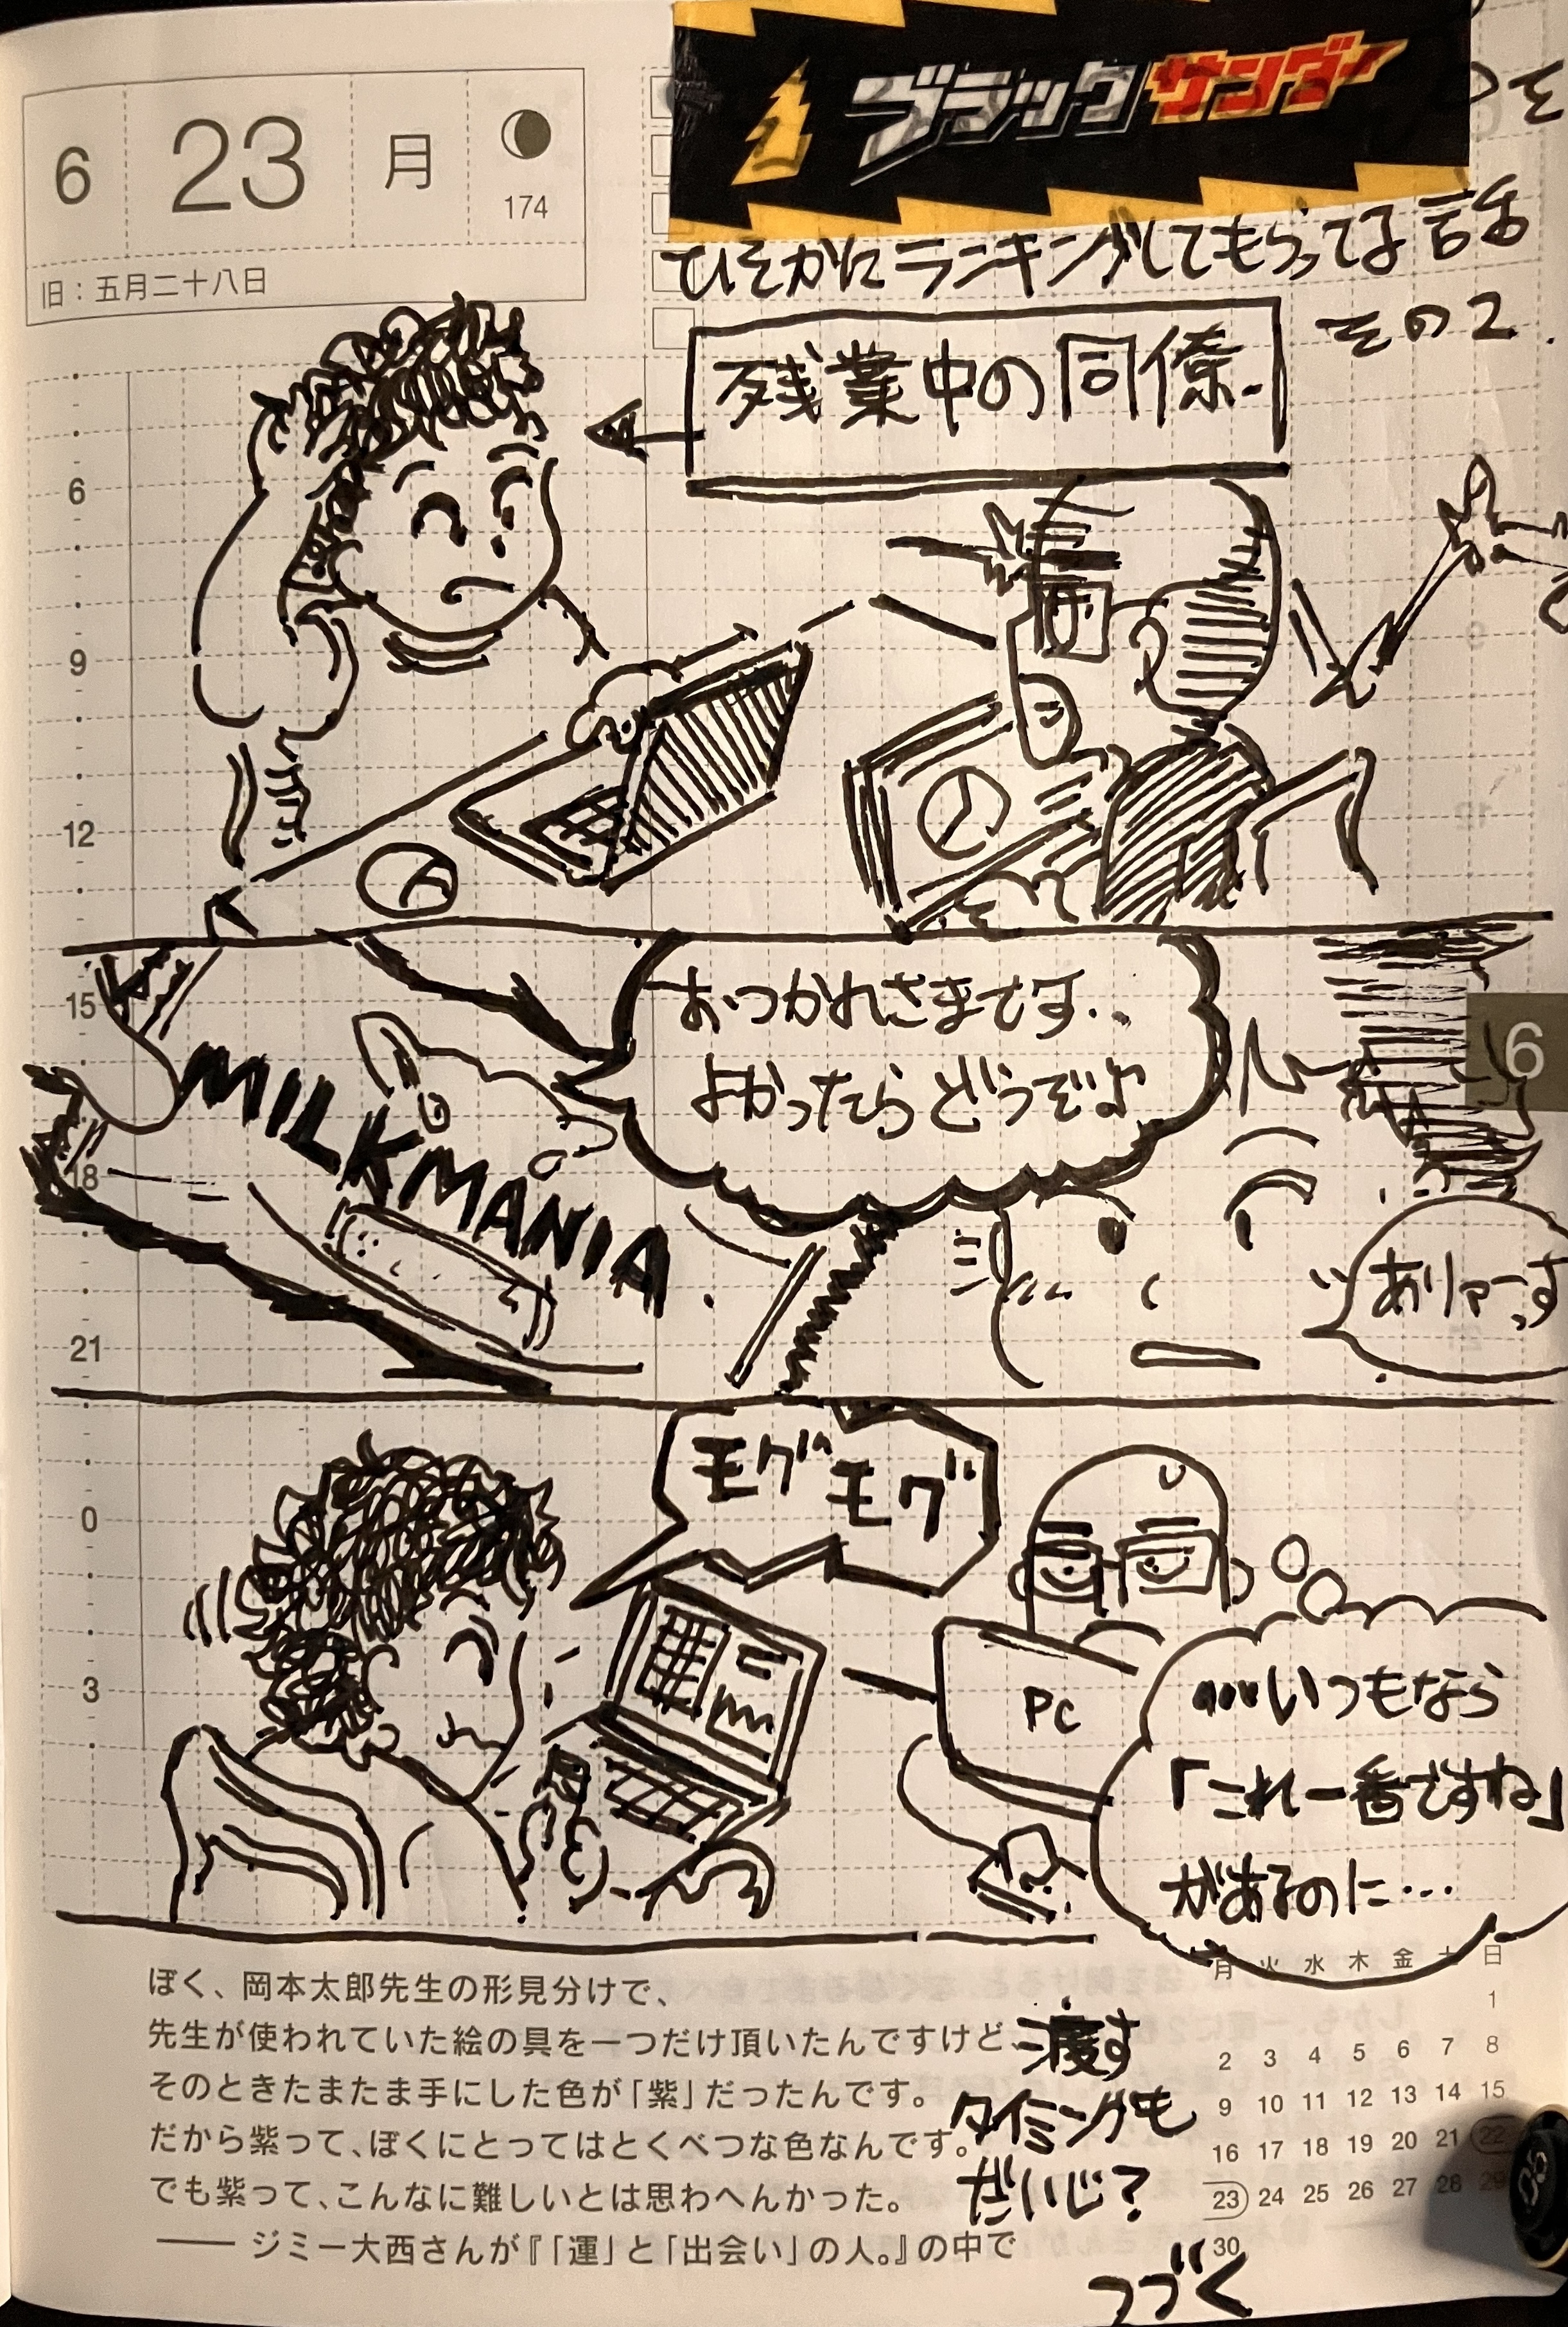 6 23 月
174
旧：五月二十八日
ブラックサンダー
を
ひそかにランキングしてもらってる話
その2.
残業中の同僚.
6
9
12
15
18
21
0
3
おつかれさまです..
よかったらどうぞよ
MILKMANIA.
6
ありゃーす
モグモグ
PC
…いつもなら
「これ一番ですね」
があるのに…
ぼく、岡本太郎先生の形見分けで、
先生が使われていた絵の具を一つだけ頂いたんですけど、
そのときたまたま手にした色が「紫」だったんです。
だから紫って、ぼくにとってはとくべつな色なんです。
でも紫って、こんなに難しいとは思わへんかった。
── ジミー大西さんが『「運」と「出会い」の人。』の中で
渡す
タイミングも
だいじ？
つづく
月 火 水 木 金 土 日
1
2 3 4 5 6 7 8
9 10 11 12 13 14 15
16 17 18 19 20 21 22
23 24 25 26 27 28 29
30